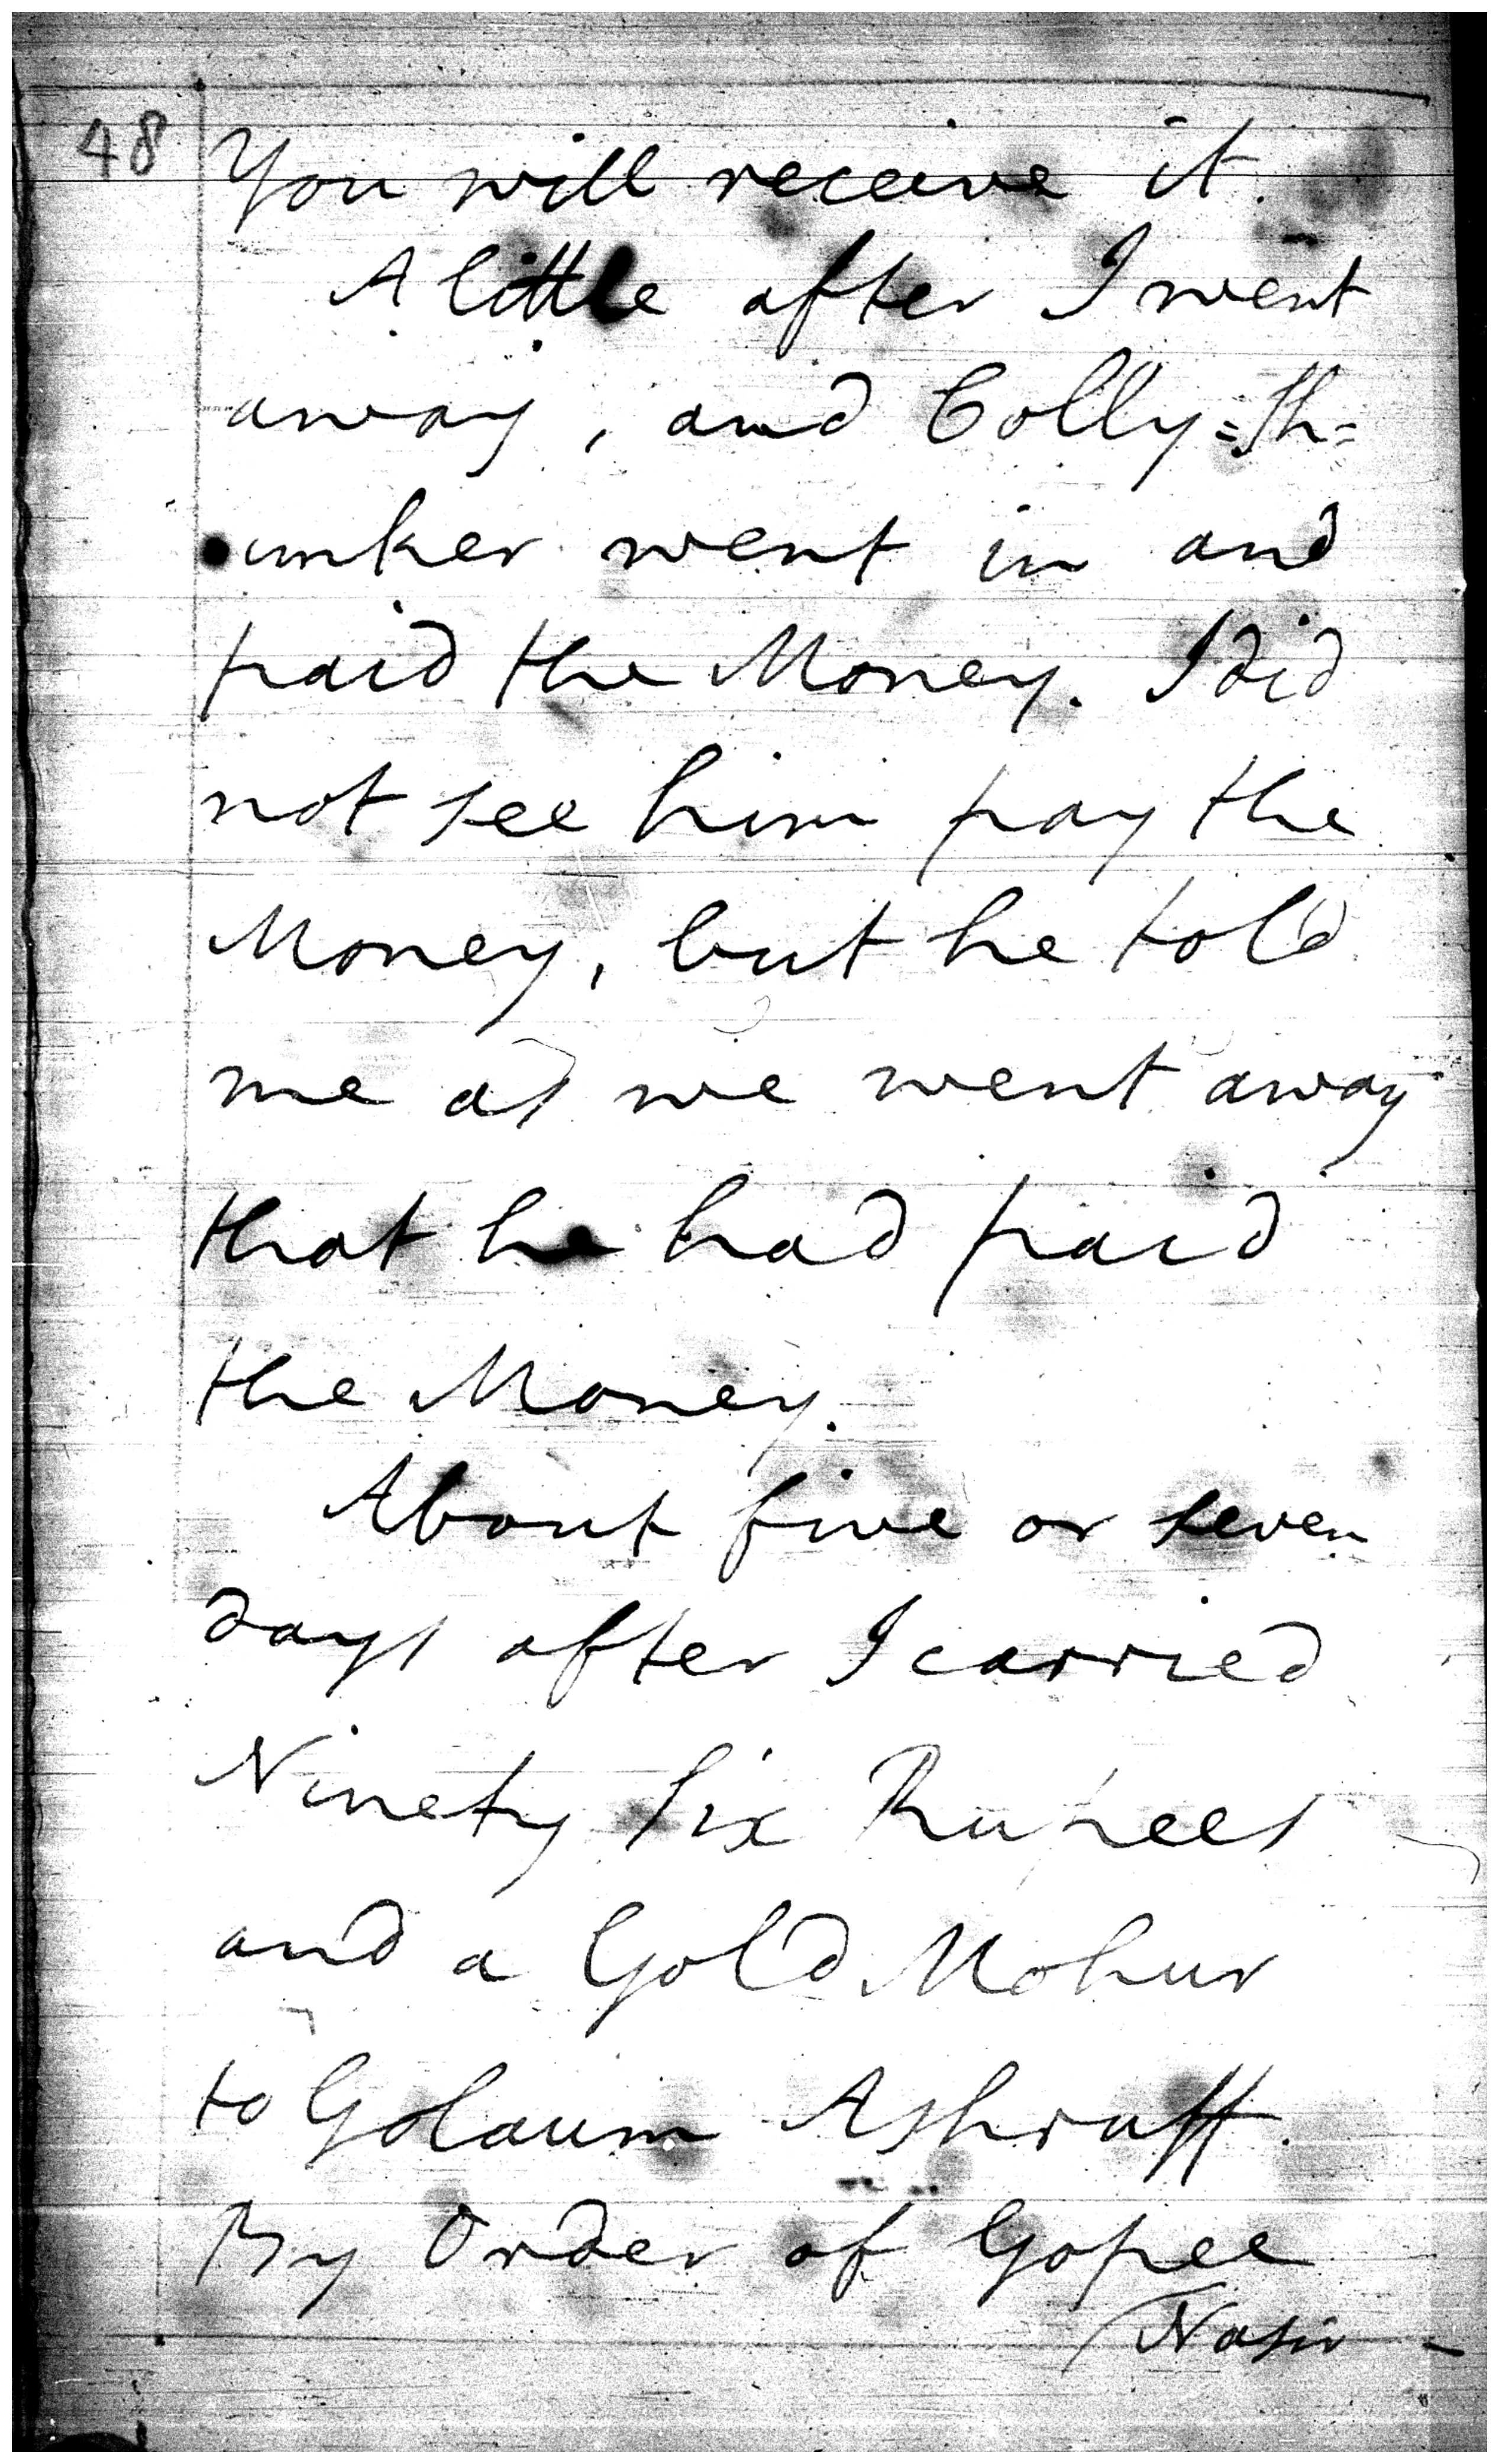 48
You will receive it.
A little after I went
away, and Colly=Sh=
unker went in and
paid the Money. I did
not see him pay the
Money, but he told
me as we went away
that he had paid
the Money.
About five or seven
days after I carried
Ninety Six Rupees
and a Gold Mohur
to Golaum Ashruff.
By Order of Gopee
Nasir